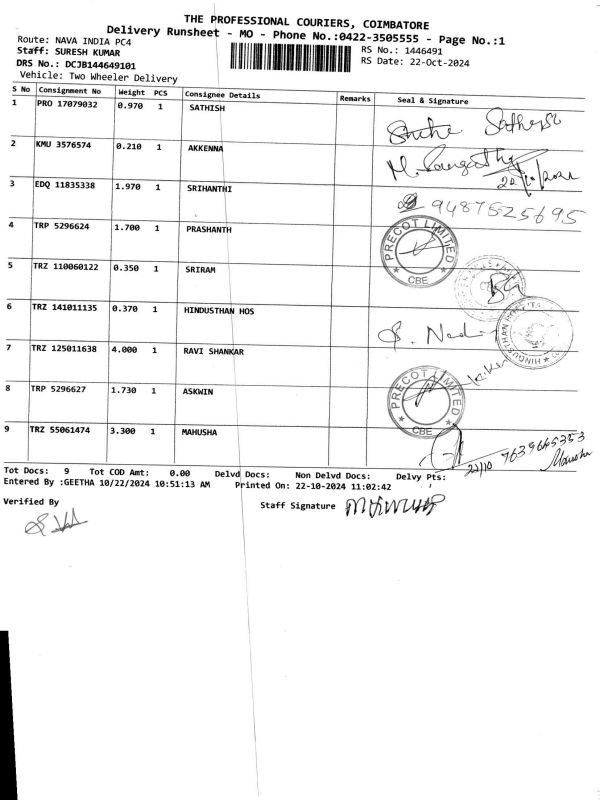 THE PROFESSIONAL COURIERS, COIMBATORE
Delivery Runsheet - MO - Phone No.:0422-3505555 - Page No.:1
Route: NAVA INDIA PC4
RS No.: 1446491
Staff: SURESH KUMAR
RS Date: 22-Oct-2024
DRS No.: DCJB144649101
Vehicle: Two Wheeler Delivery
S No Consignment No Weight PCS Consignee Details Remarks Seal & Signature
1 PRO 17079032 0.970 1 SATHISH
2 KMU 3576574 0.210 1 AKKENNA
3 EDQ 11835338 1.970 1 SRIHANTHI 9487525695
4 TRP 5296624 1.700 1 PRASHANTH PRECOT LIMITED CBE
5 TRZ 110060122 0.350 1 SRIRAM
6 TRZ 141011135 0.370 1 HINDUSTHAN HOS
7 TRZ 125011638 4.000 1 RAVI SHANKAR
8 TRP 5296627 1.730 1 ASKWIN PRECOT LIMITED CBE
9 TRZ 55061474 3.300 1 MAHUSHA 7639665353
Tot Docs: 9 Tot COD Amt: 0.00 Delvd Docs: Non Delvd Docs: Delvy Pts:
Entered By :GEETHA 10/22/2024 10:51:13 AM Printed On: 22-10-2024 11:02:42
Verified By
Staff Signature